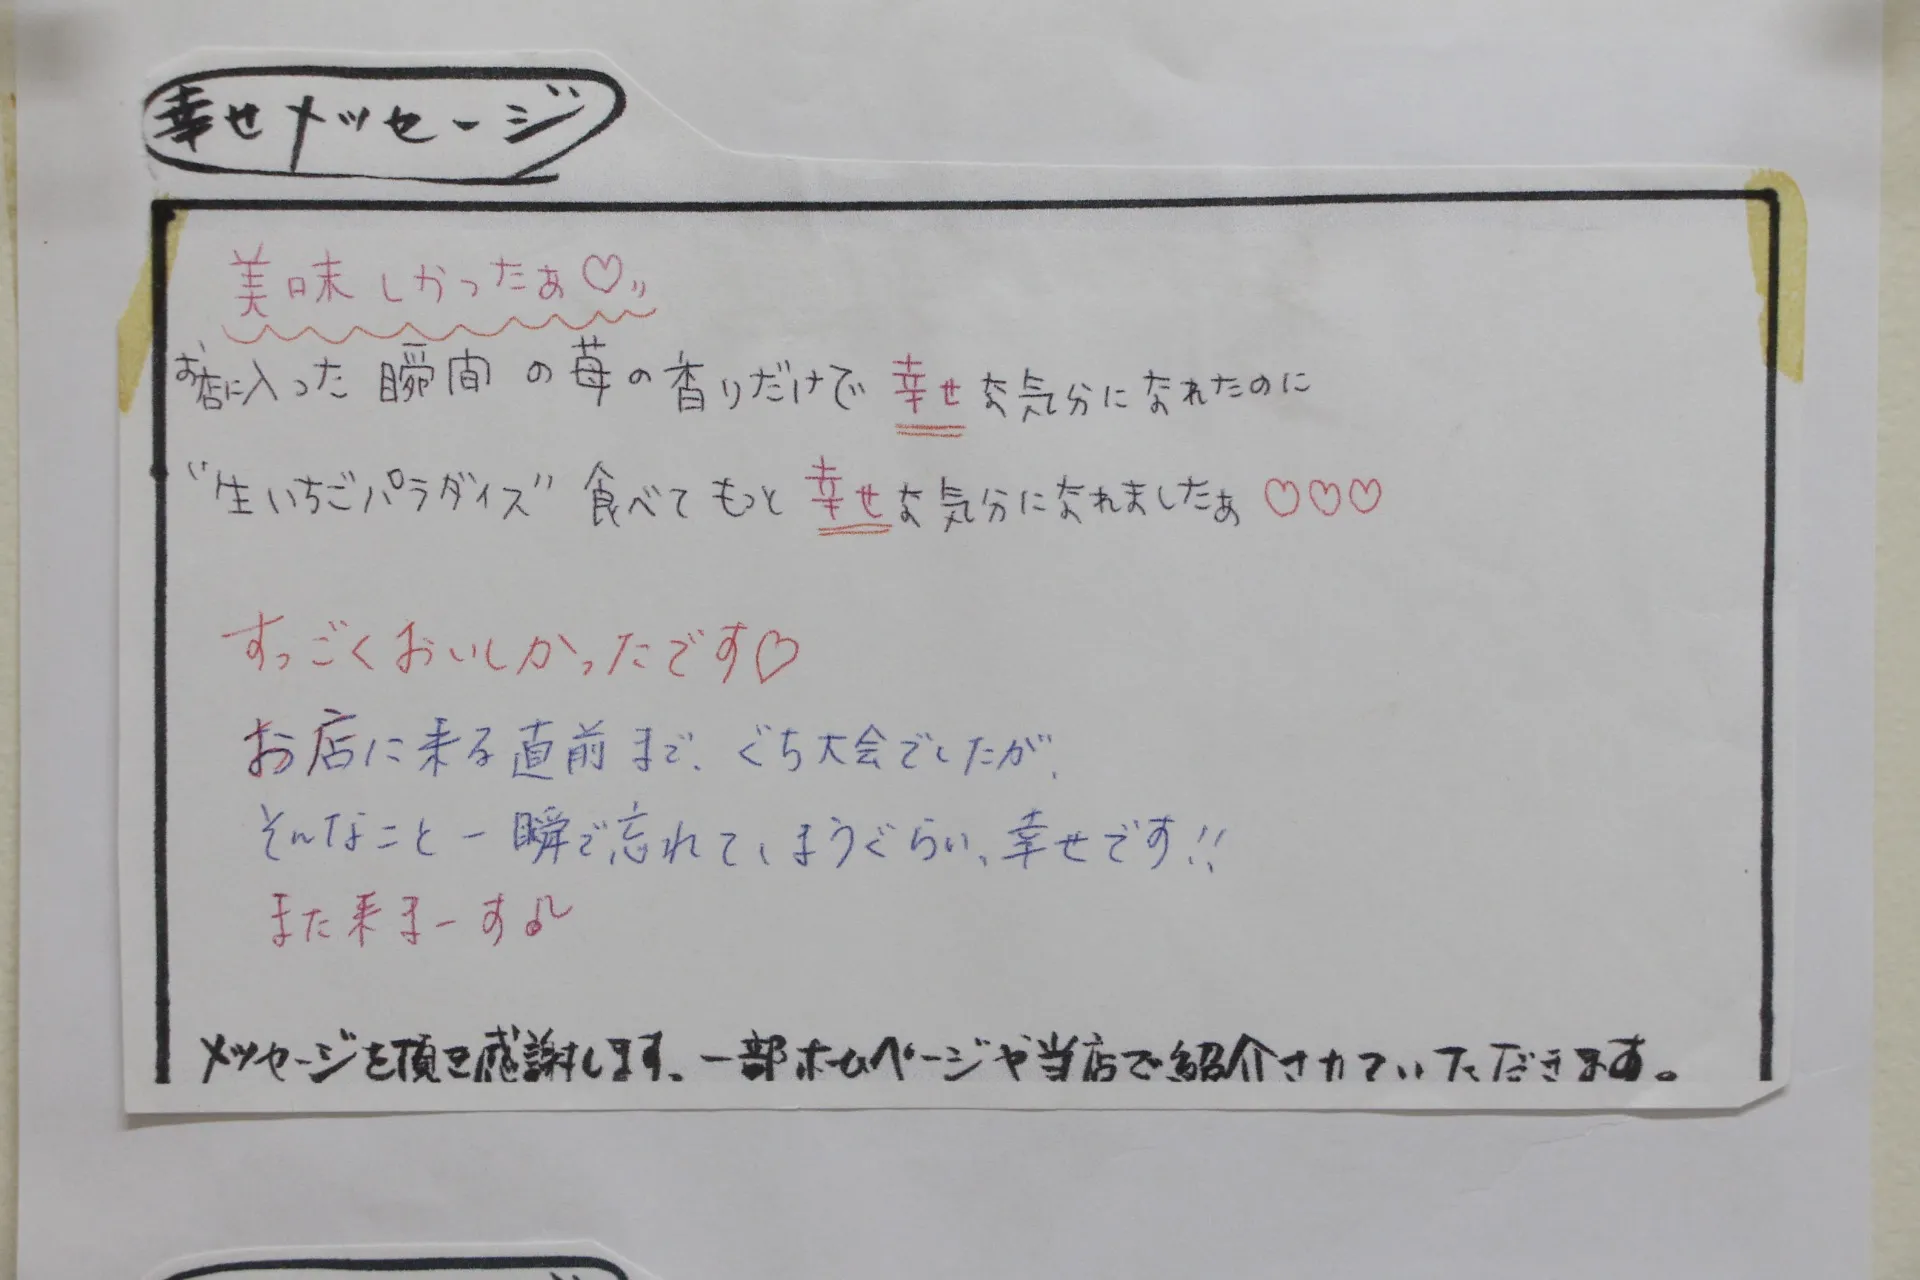 幸せメッセージ
美味しかったぁ♡〃
お店に入った瞬間の苺の香りだけで幸せな気分になれたのに
“生いちごパラダイス”食べてもっと幸せな気分になれましたぁ♡♡♡
すっごくおいしかったです♡
お店に来る直前まで、ぐち大会でしたが、
そんなこと一瞬で忘れてしまうぐらい、幸せです!!
また来まーす♪
メッセージを頂き感謝します。一部ホームページや当店で紹介させていただきます。